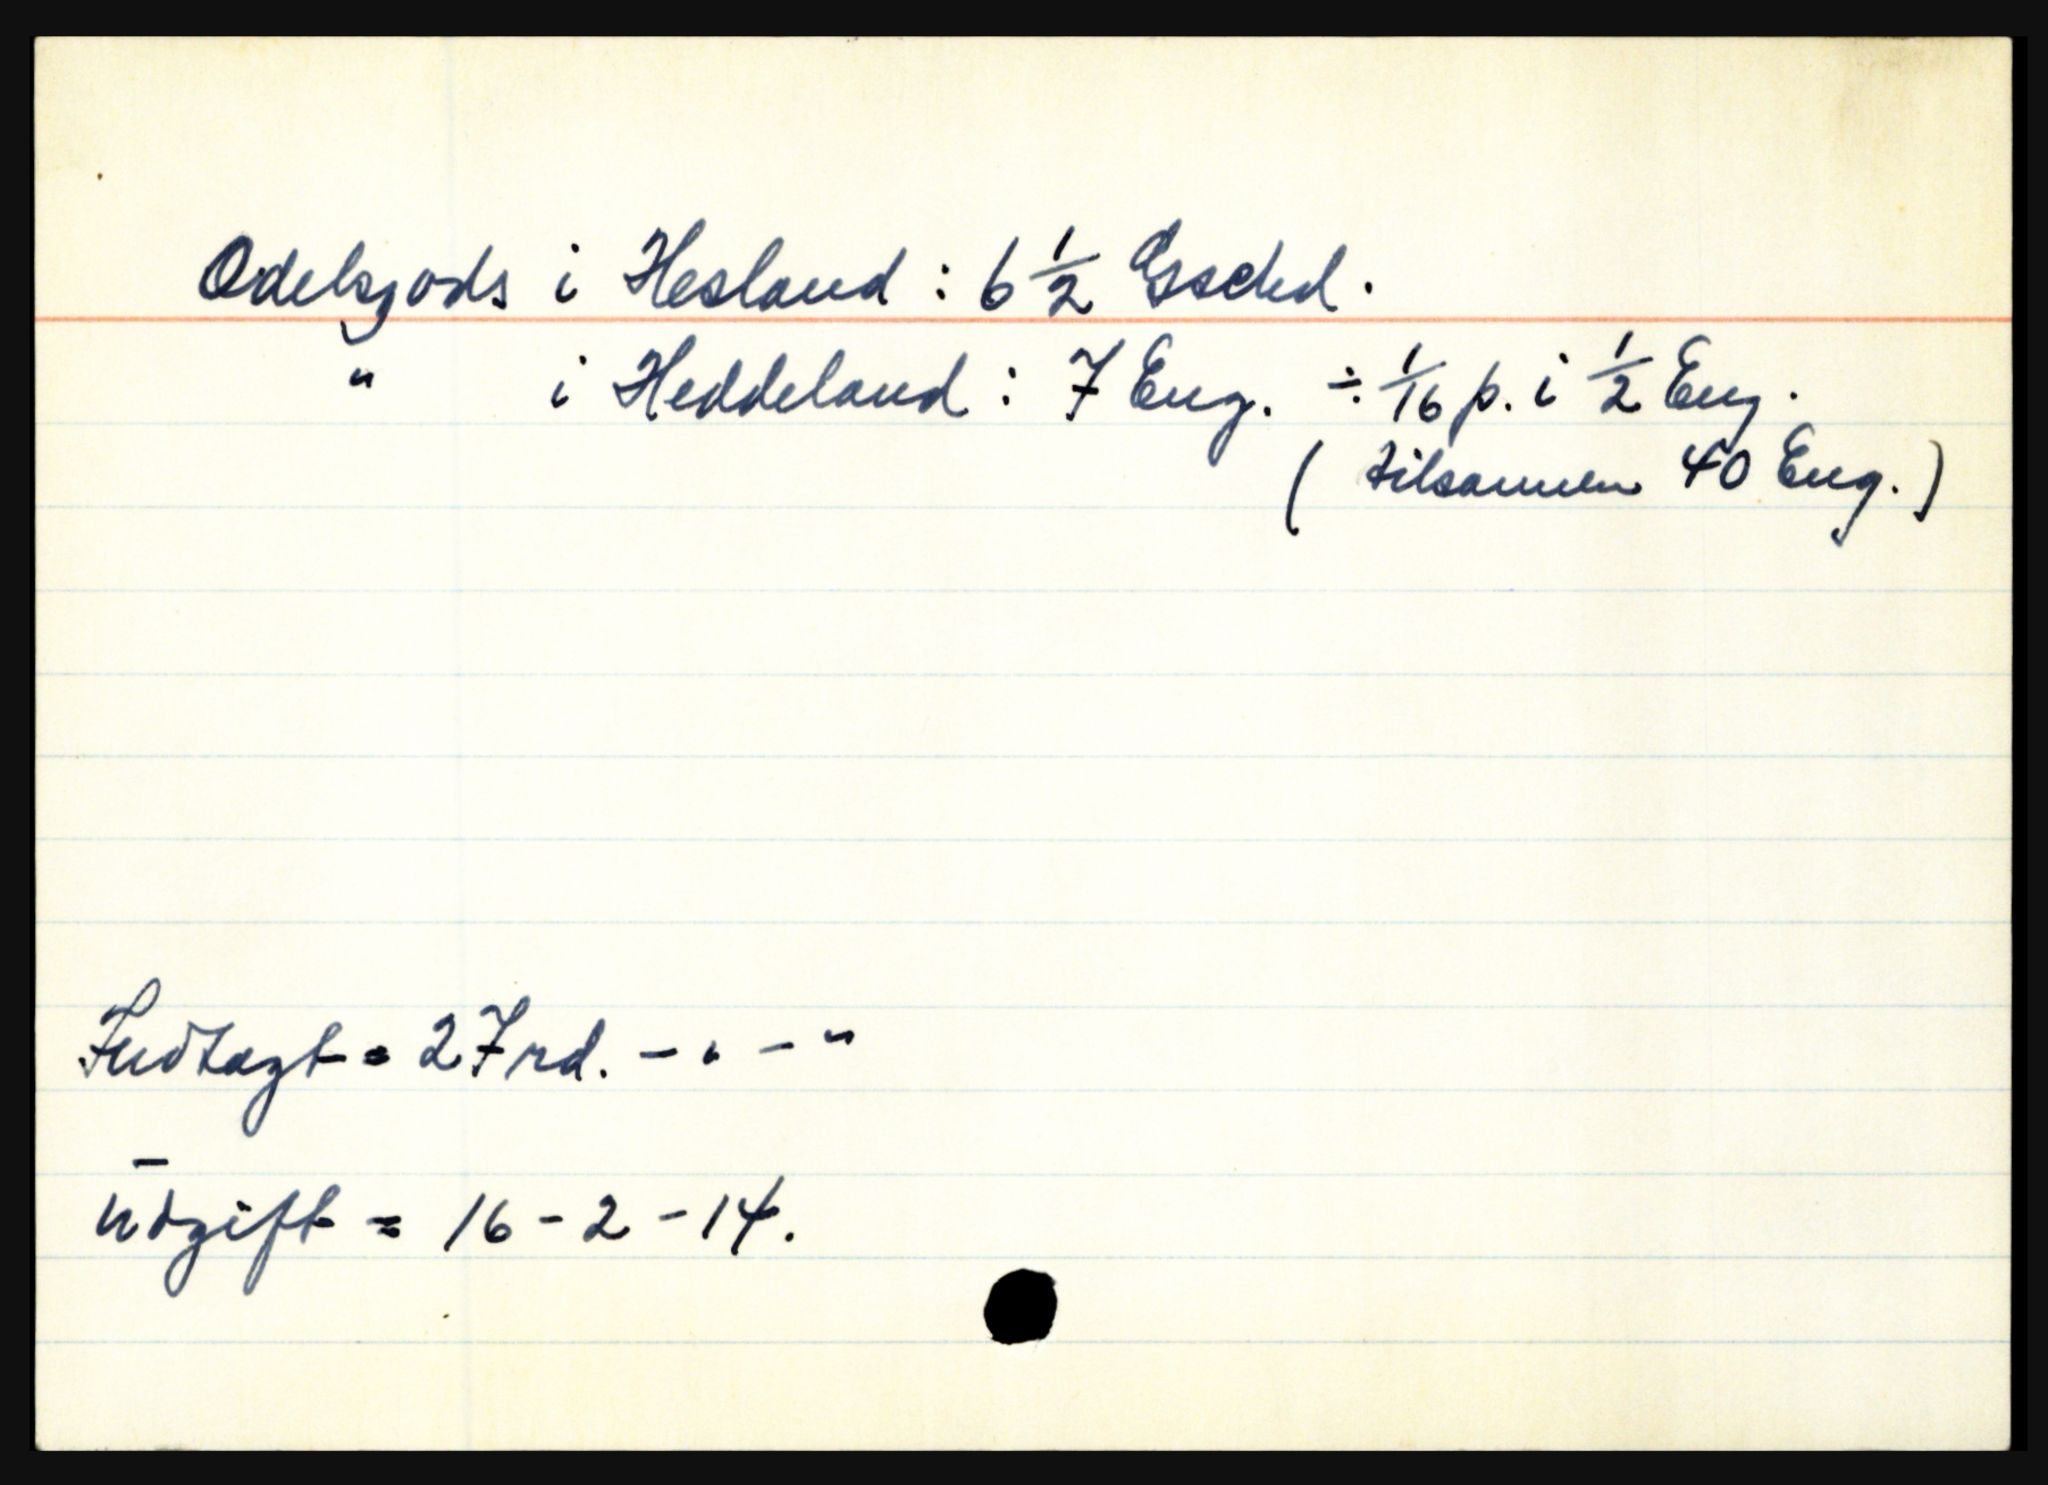 Odelsgods i Hesland : 6 1/2 Gsschd.
" i Heddeland : 7 Eng. ÷ 1/16 p. i 1/2 Eng.
( tilsammen 40 Eng. )
Indtægt = 27 rd. - " - "
Udgift = 16 - 2 - 14.